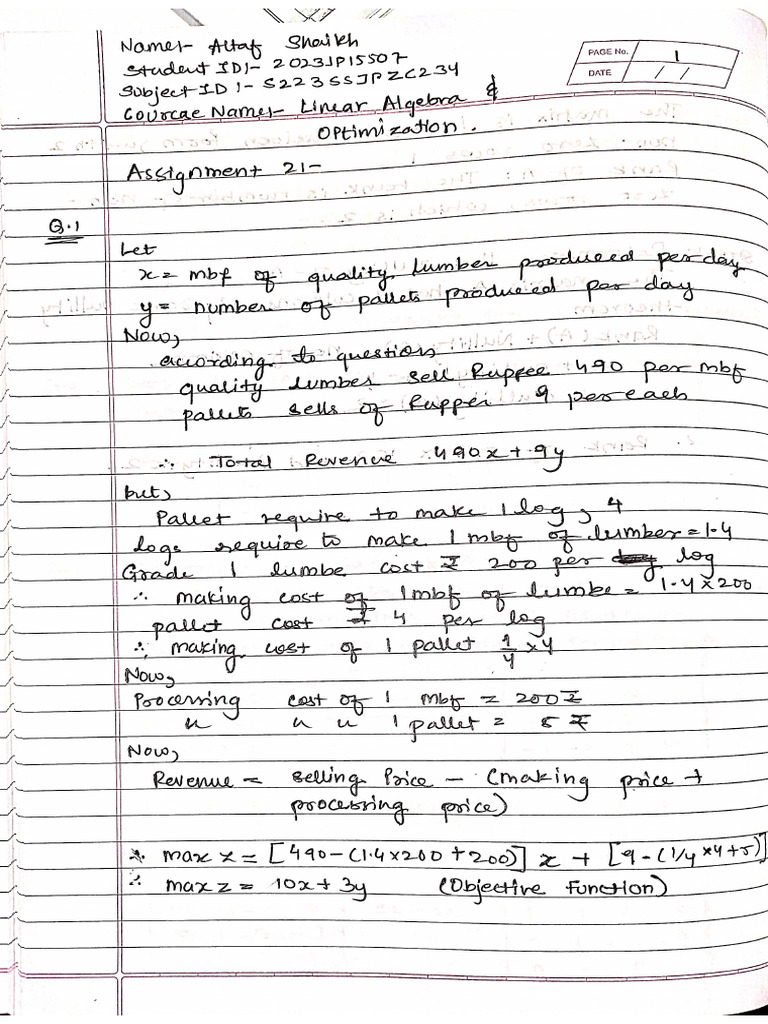 Name:- Altaf Shaikh
Student ID:- 2023JP15507
Subject ID:- S223SSJPZC234
Cource Name:- Linear Algebra &
Optimization.
PAGE No. 1
DATE / /
Assignment 2:-
Q.1
Let
x = mbf of quality Lumber produced per day
y = number of pallets produced per day
Now,
according to question,
quality lumber sell Ruppee 490 per mbf
pallets sells of Rupper 9 per each
∴ Total Revenue 490x + 9y
but,
Pallet require to make 1 log, 4
logs require to make 1 mbf of lumber = 1.4
Grade 1 lumbe cost ₹ 200 per log
∴ making cost of 1 mbf of lumbe = 1.4 x 200
pallet cost ₹ 4 per log
∴ making cost of 1 pallet 1/4 x 4
Now,
Processing cost of 1 mbf = 200 ₹
u u u 1 pallet = 5 ₹
Now,
Revenue = selling Price - (making price +
processing price)
∴ max z = [490 - (1.4 x 200 + 200)] x + [9 - (1/4 x 4 + 5)]
∴ max z = 10x + 3y (Objective Function)